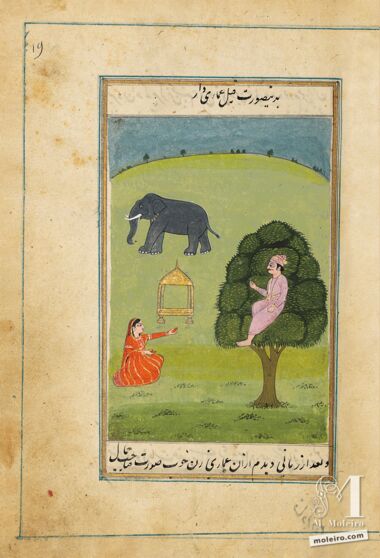 19
بدینصورت فیل عماری دار
و بعد از زمانی دیدم از آن عماری زن خوب صورت صاحب جمال
M
M. Moleiro
moleiro.com